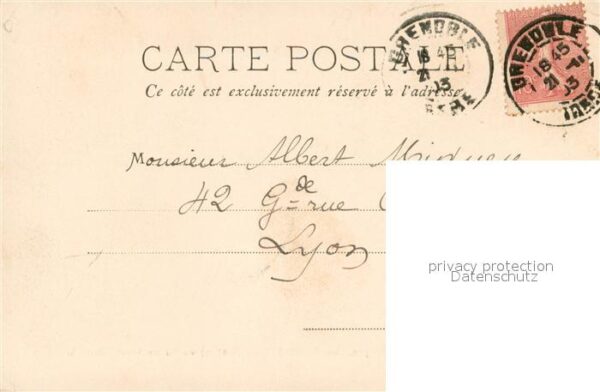 CARTE POSTALE
Ce côté est exclusivement réservé à l'adresse
GRENOBLE
18 45
21
03
ISERE
GRENOBLE
18 45
21
03
ISERE
Monsieur Albert
42 Gde rue
Lyon
privacy protection
Datenschutz